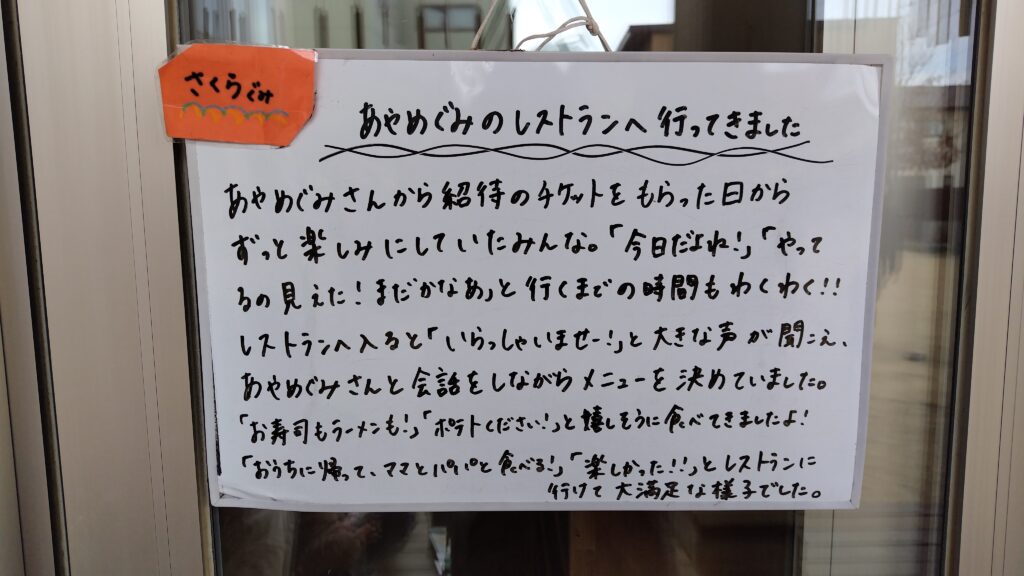 さくらぐみ
あやめぐみのレストランへ行ってきました
あやめぐみさんから紹待のチケットをもらった日から
ずっと楽しみにしていたみんな。「今日だよね!」「やって
るの見えた!まだかなあ」と行くまでの時間もわくわく!!
レストランへ入ると「いらっしゃいませー!」と大きな声が聞こえ、
あやめぐみさんと会話をしながらメニューを決めていました。
「お寿司もラーメンも!」「ポテトください!」と嬉しそうに食べてきましたよ!
「おうちに帰って、ママとパパと食べる!」「楽しかった!!」とレストランに
行けて大満足な様子でした。